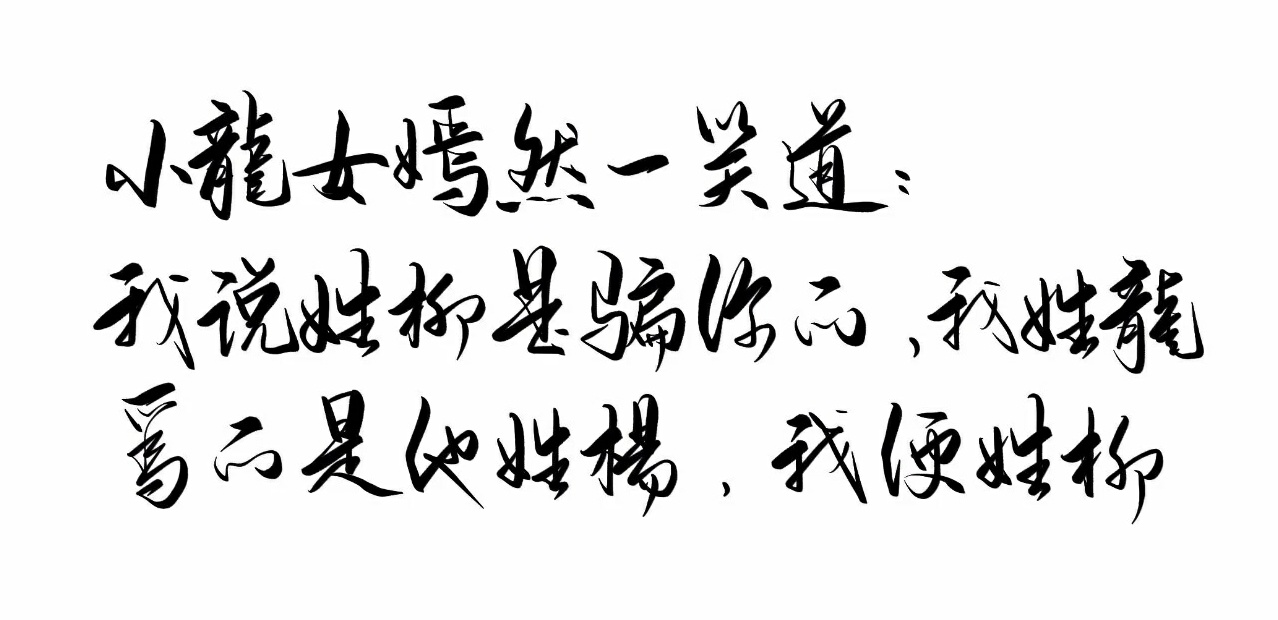 小龍女嫣然一笑道：
我说姓柳是骗你的，我姓龍
為的是他姓楊，我便姓柳